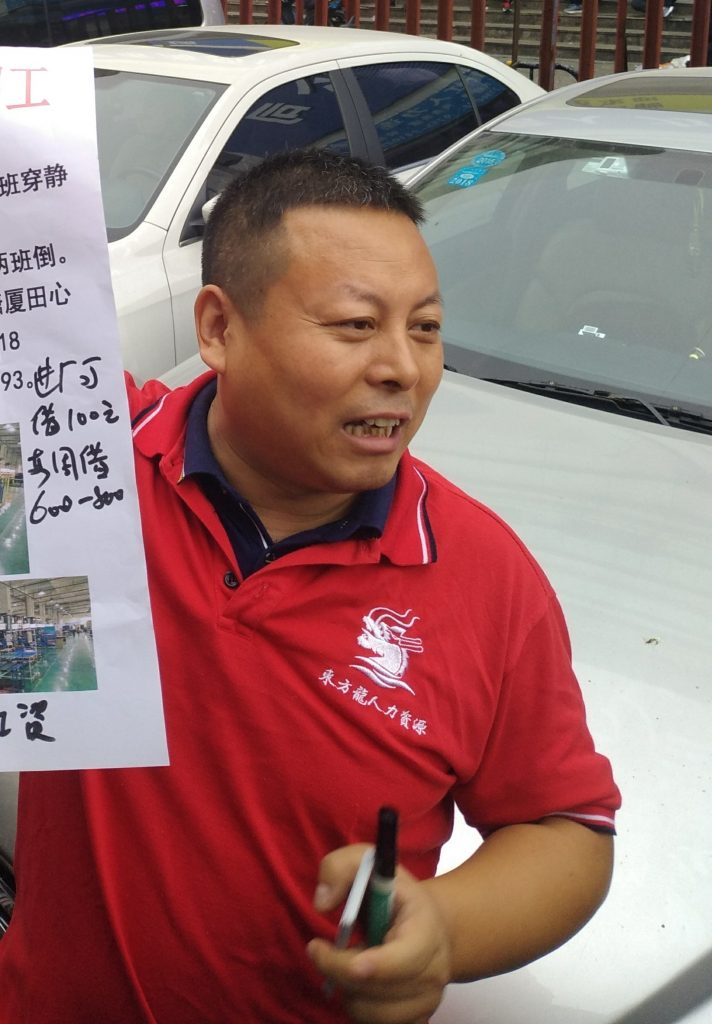 工
班穿静
两班倒。
厦田心
18
93。
进厂可
借100元
每周借
600-800
工资
東方龍人力資源
2018